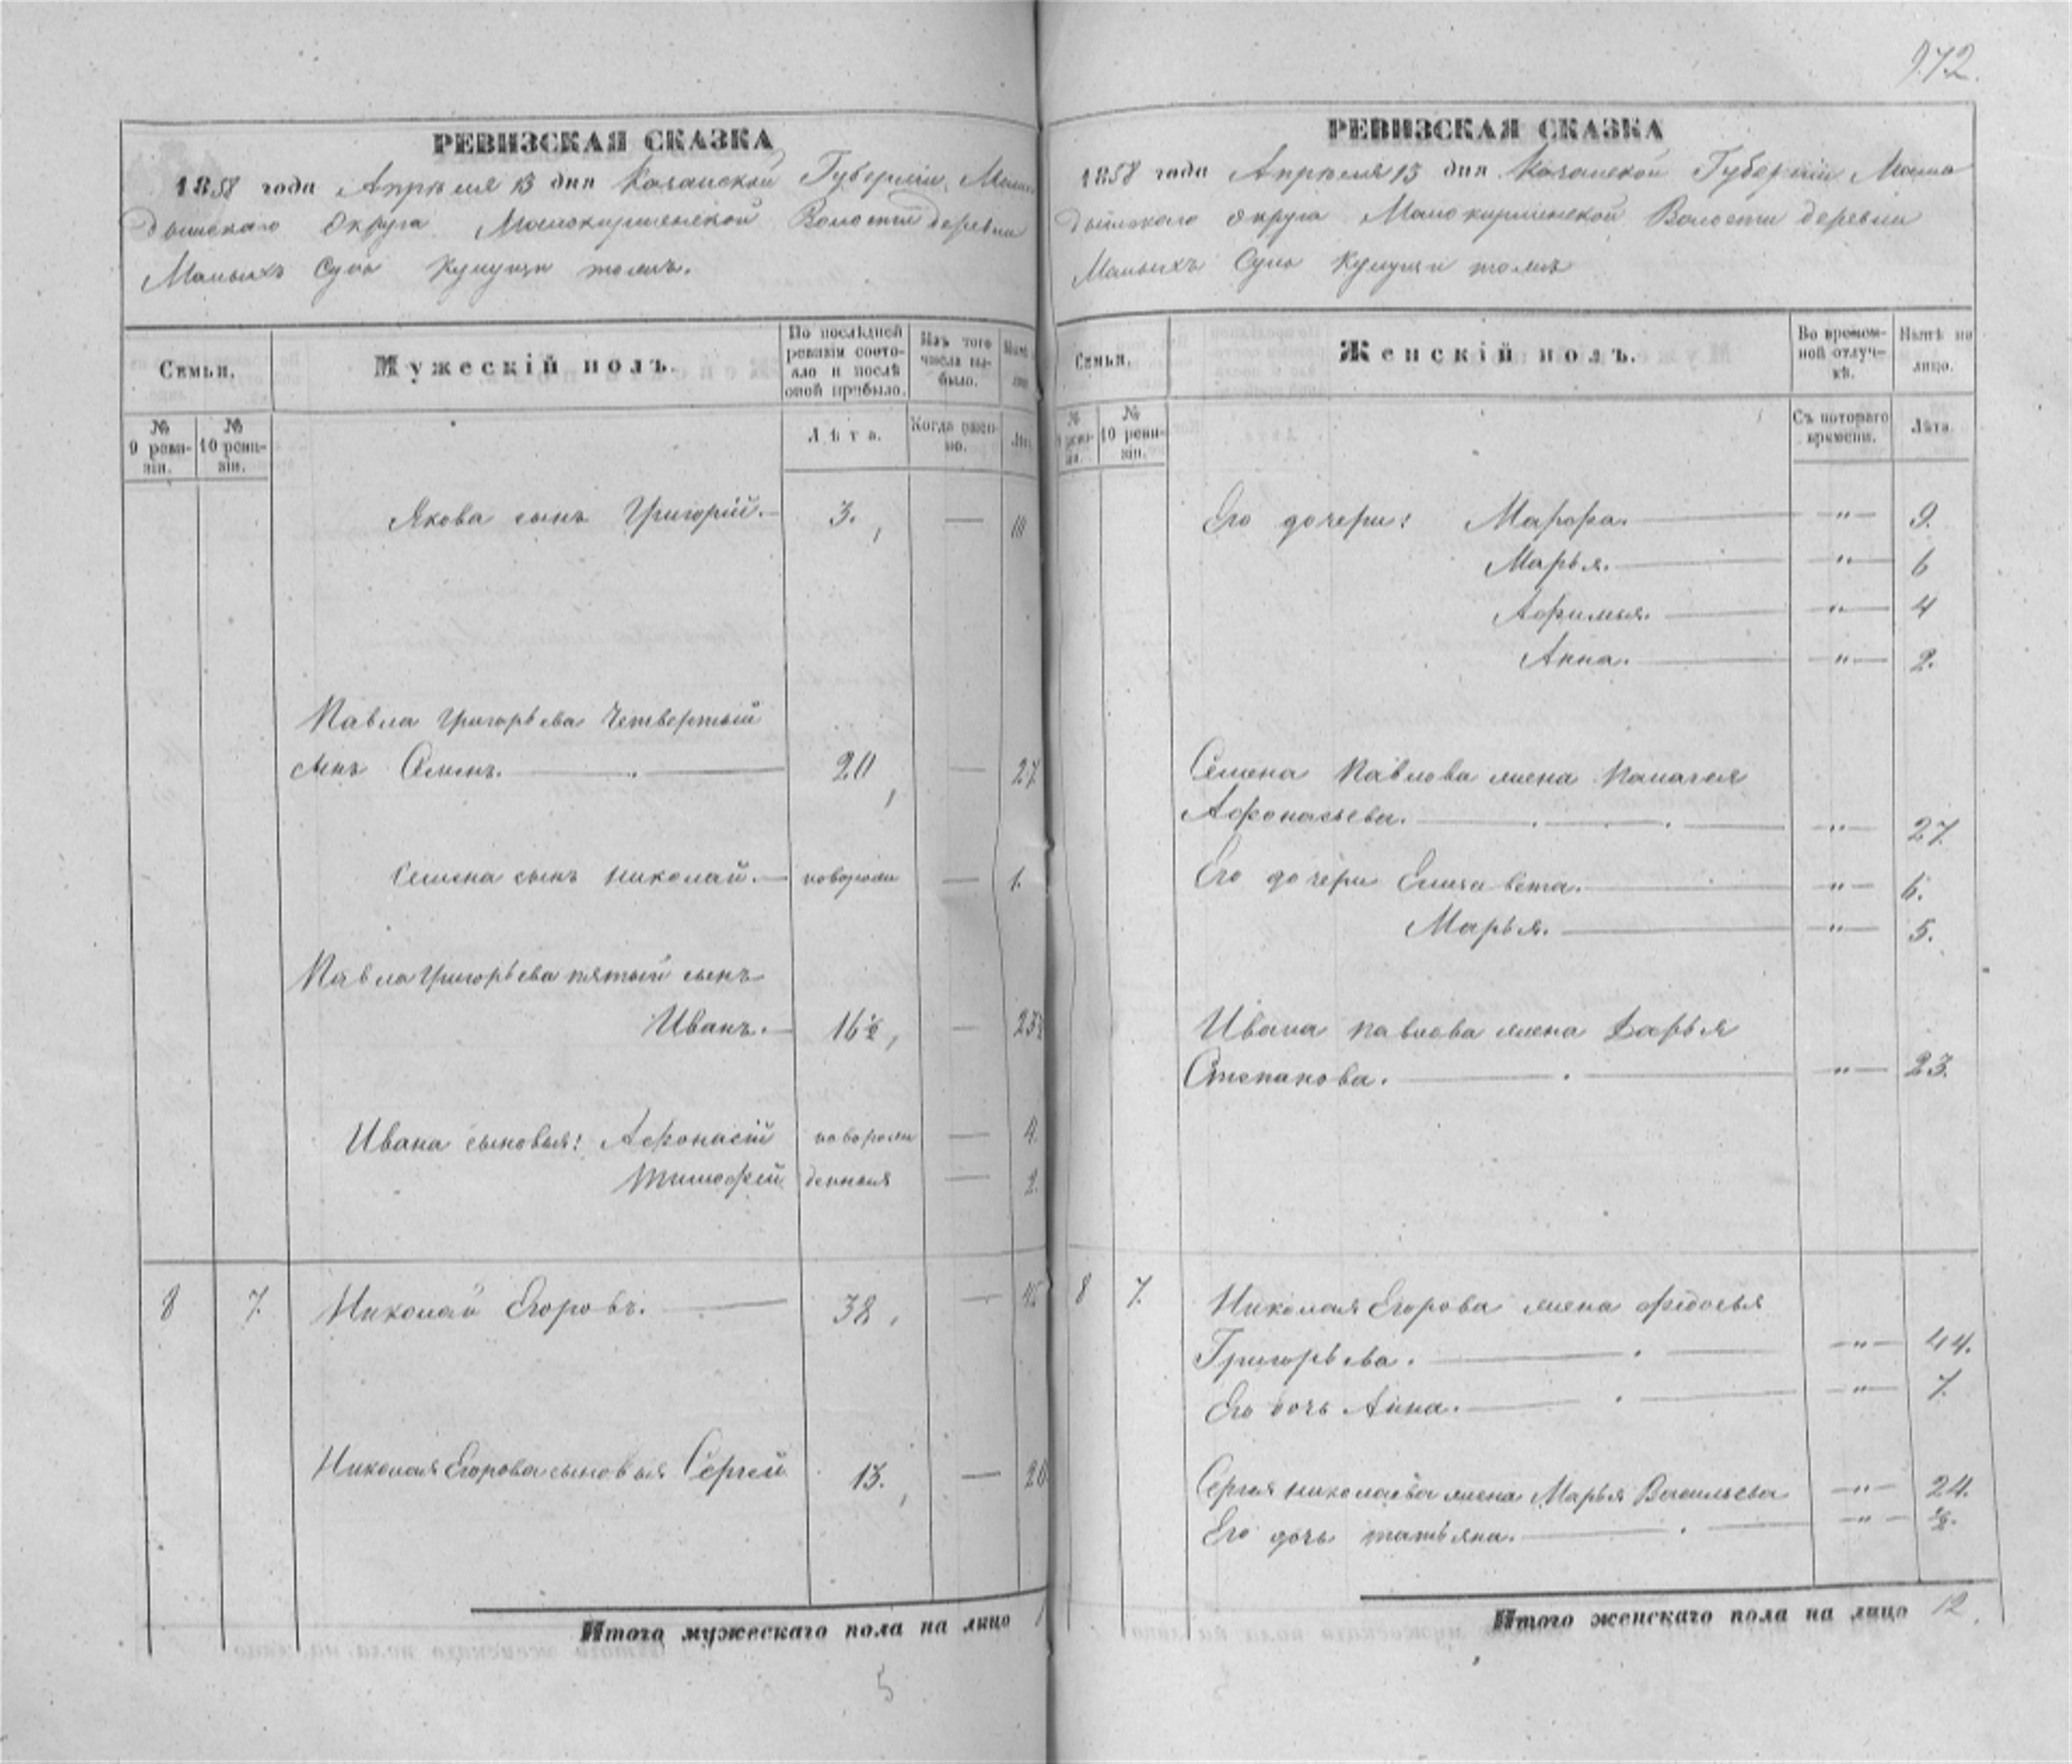 972.
РЕВИЗСКАЯ СКАЗКА
1858 года Апреля 13 дня Казанской Губернiи Мама
дышскаго Округа Малокирменской Волости деревни
Малыхъ Сунь Кумущи тожъ.
Семьи.
Мужескiй полъ.
По послѣдней ревизiи состояло и послѣ оной прибыло.
Изъ того числа выбыло.
№ 9 ревизiи.
№ 10 ревизiи.
Лѣта.
Когда имен-
но.
Лѣта
Якова сынъ Григорiй. 3. — 10
Павла Григорьева четвертый
сынъ Семенъ. 20 — 27
Семена сынъ Николай. — новорож — 1.
Павла Григорьева пятый сынъ
Иванъ. — 16½ — 23½
Ивана сыновья: Афонасiй новорож — 4.
Тимофей денныя — 2
8 7. Николай Егоровъ. 38 — 45
Николая Егорова сыновья Сергей 13. — 20
Итого мужескаго пола на лицо
5
РЕВИЗСКАЯ СКАЗКА
1858 года Апреля 13 дня Казанской Губернiи Мама
дышскаго Округа Малокирменской Волости деревни
Малыхъ Сунь Кумущи тожъ
Семьи.
Женскiй полъ.
Во времен-
ной отлуч-
кѣ.
Налѣ на
лицо.
№ 10 ревизiи.
Съ котораго
времени.
Лѣта.
Его дочери: Марфа. — " — 9.
Марья. — " — 6
Афимья. — " — 4
Анна. — " — 2.
Семена Павлова жена Палагея
Афонасьева. — " — 27
Его дочери Елизавета. — " — 6.
Марья. — " — 5.
Ивана Павлова жена Дарья
Степанова. — " — 23.
8 7. Николая Егорова жена Федосья
Григорьева. — " — 44.
Его дочь Анна. — " — 7.
Сергея Николаева жена Марья Васильева — " — 24.
Его дочь Татьяна. — " — ½.
Итого женскаго пола на лицо 12.